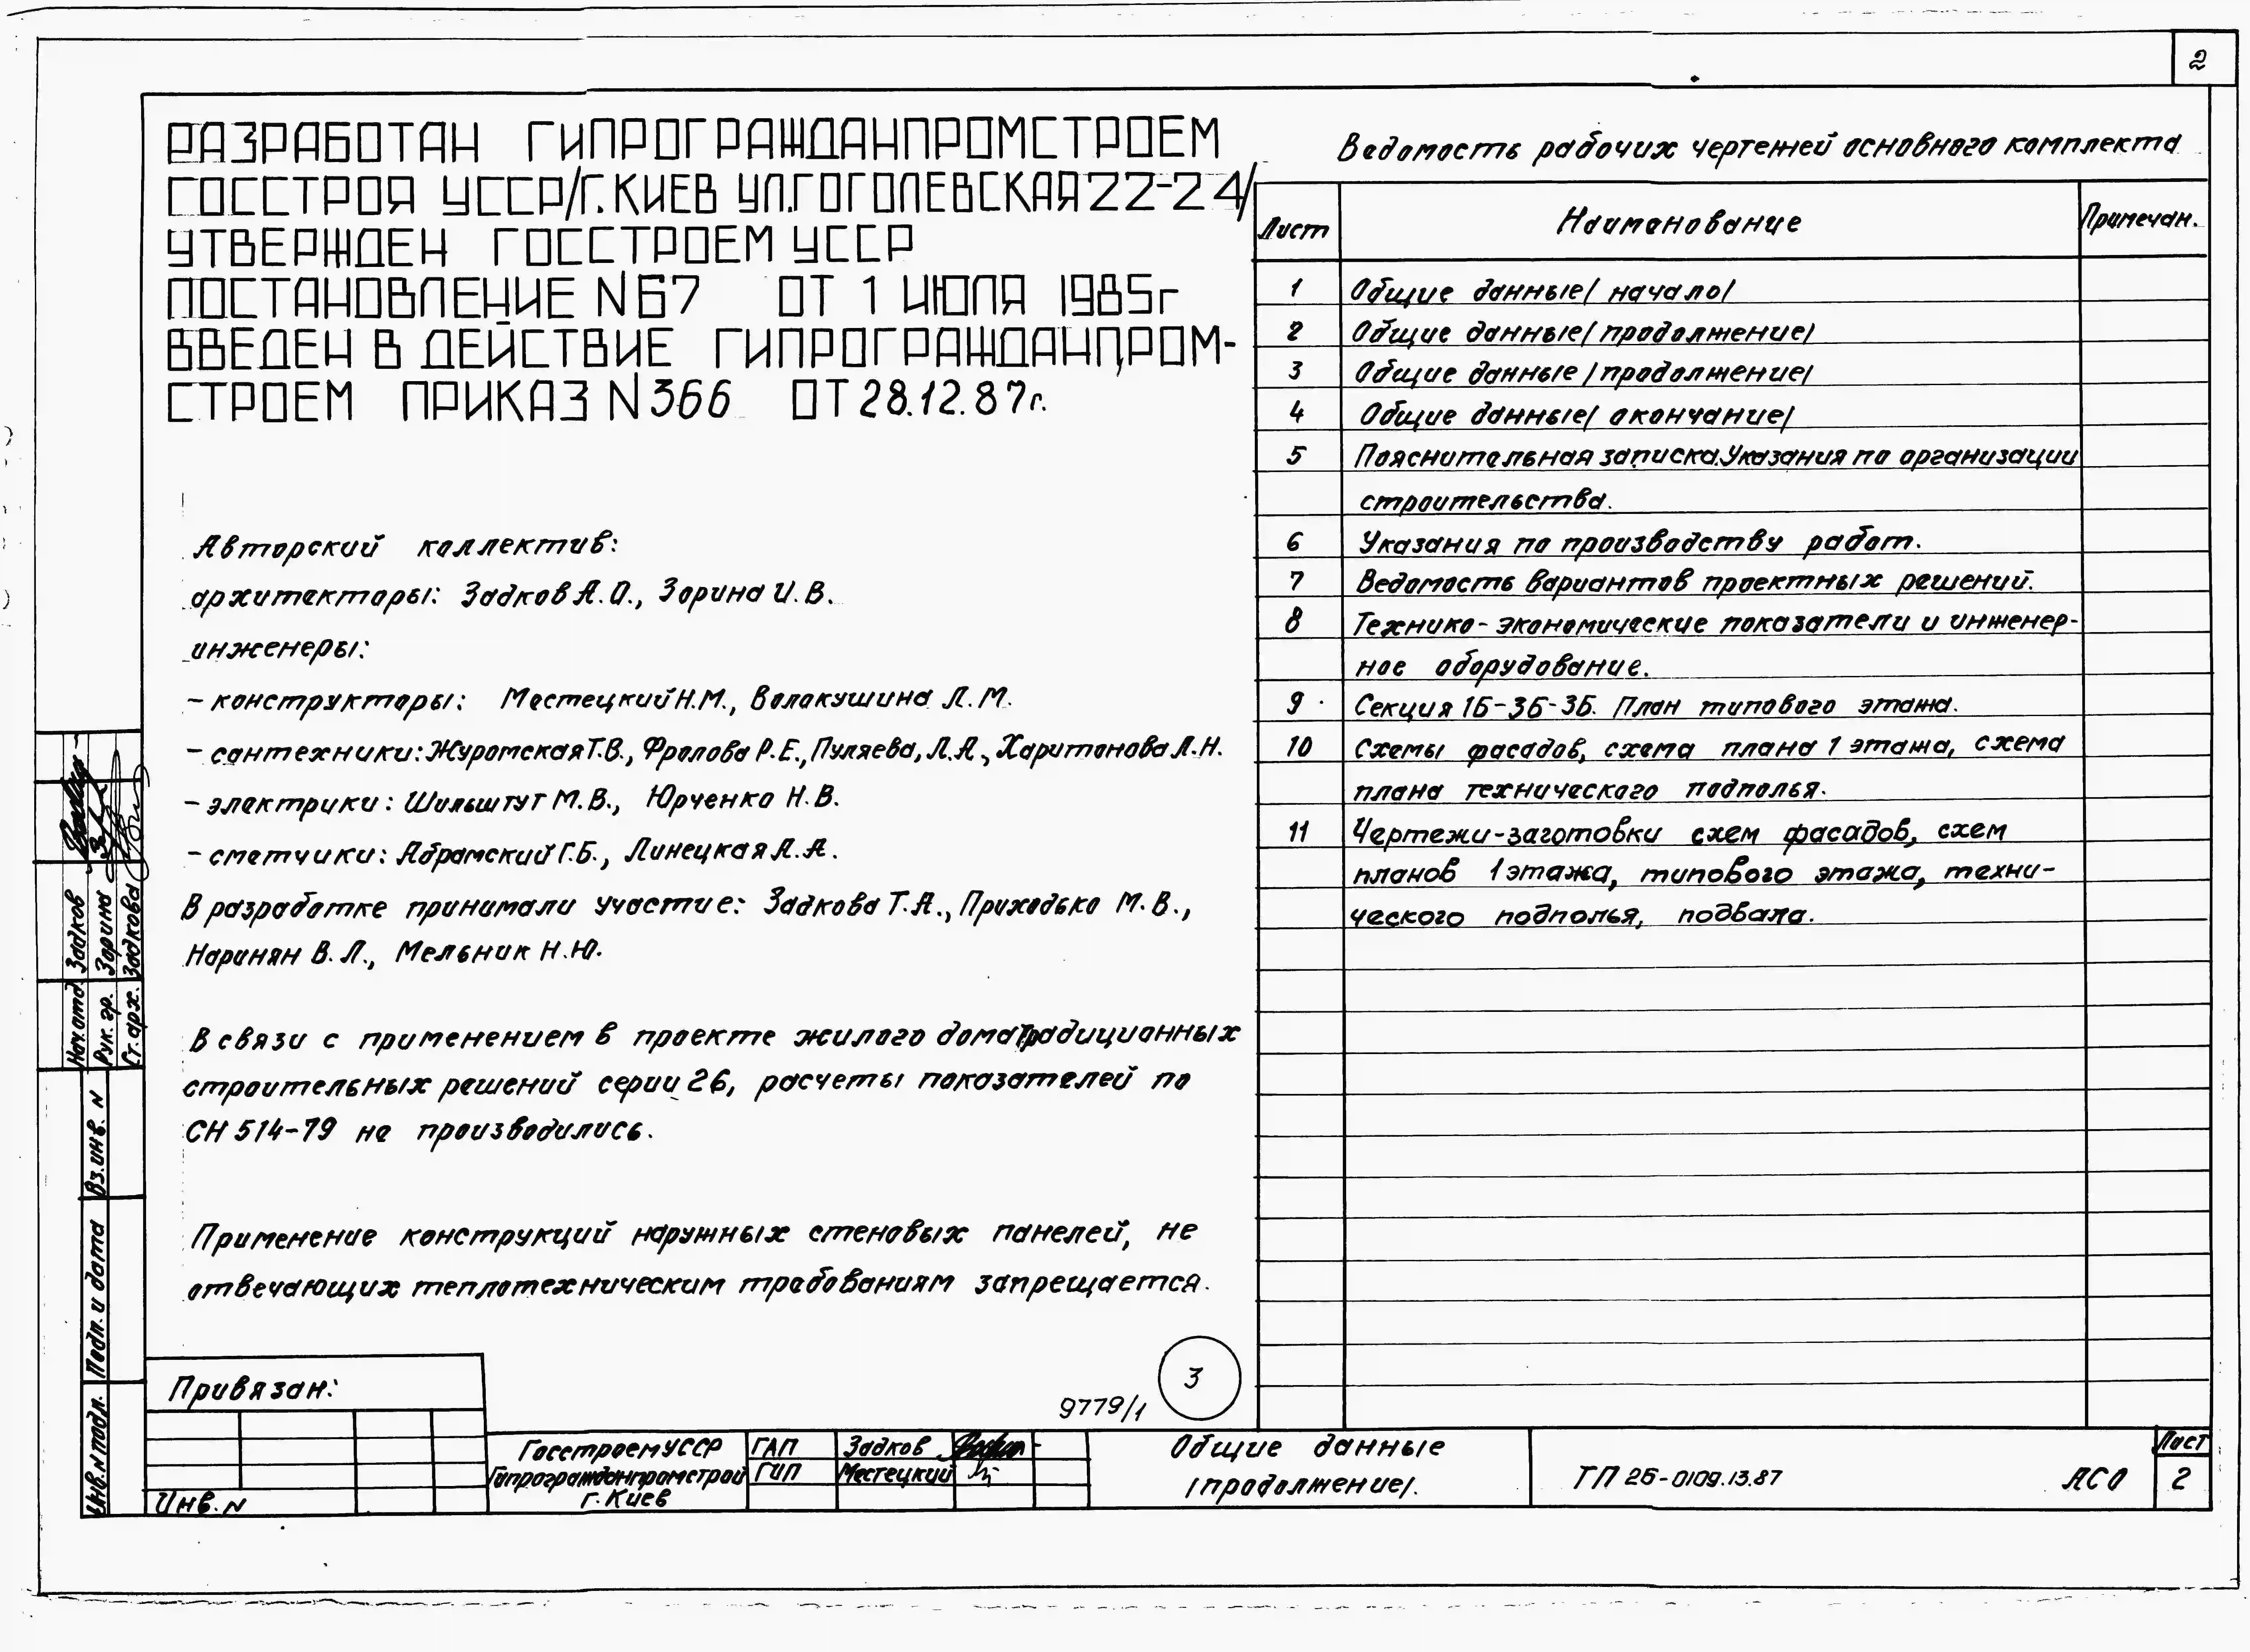 2
РАЗРАБОТАН ГИПРОГРАЖДАНПРОМСТРОЕМ
ГОССТРОЯ УССР/Г.КИЕВ УЛ.ГОГОЛЕВСКАЯ 22-24/
УТВЕРЖДЕН ГОССТРОЕМ УССР
ПОСТАНОВЛЕНИЕ N67 ОТ 1 ИЮЛЯ 1985г
ВВЕДЕН В ДЕЙСТВИЕ ГИПРОГРАЖДАНПРОМ-
СТРОЕМ ПРИКАЗ N366 ОТ 28.12.87г.
Авторский коллектив:
архитекторы: Задков А.О., Зорина И.В.
инженеры:
- конструкторы: Местецкий Н.М., Волокушина Л.М.
- сантехники: Журомская Т.В., Фролова Р.Е., Пуляева, Л.А., Харитонова Л.Н.
- электрики: Шильштут М.В., Юрченко Н.В.
- сметчики: Абрамский Г.Б., Линецкая А.А.
В разработке принимали участие: Задкова Т.А., Приходько М.В.,
Наринян В.Л., Мельник Н.Ю.
В связи с применением в проекте жилого дома традиционных
строительных решений серии 26, расчеты показателей по
СН 514-79 не производились.
Применение конструкций наружных стеновых панелей, не
отвечающих теплотехническим требованиям запрещается.
3
9779/1
Ведомость рабочих чертежей основного комплекта
Лист Наименование Примечан.
1 Общие данные/ начало/
2 Общие данные/ продолжение/
3 Общие данные /продолжение/
4 Общие данные/ окончание/
5 Пояснительная записка. Указания по организации
строительства.
6 Указания по производству работ.
7 Ведомость вариантов проектных решений.
8 Технико-экономические показатели и инженер-
ное оборудование.
9 Секция 1Б-3Б-3Б. План типового этажа.
10 Схемы фасадов, схема плана 1 этажа, схема
плана технического подполья.
11 Чертежи-заготовки схем фасадов, схем
планов 1 этажа, типового этажа, техни-
ческого подполья, подвала.
Нач.отд Задков
Рук. гр. Зорина
Ст. арх. Задкова
Вз.инв. N
Подп. и дата
Инв.N подл.
Привязан:
Инв. N
Госстрой УССР
Гипрогражданпромстрой
г. Киев
ГАП Задков
ГИП Местецкий
Общие данные
/продолжение/.
ТП 26-0109.13.87 АСО
Лист
2